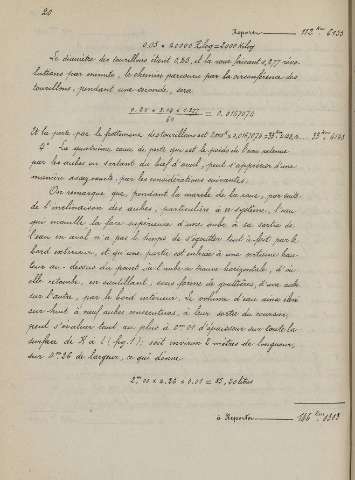 20
Reporter 112 Km 6133
0.05 x 20000 Kilog = 2000 Kilog
Le diamètre des tourillons étant 0,25, et la roue faisant 0,277 révo-
lutions par minute, le chemin parcouru par la circonférence des
tourillons, pendant une seconde, sera
= 0.0167074
60
Et la perte par le frottement des tourillons est
4° La quatrième cause de perte qui est le poids de l'eau retenue
par les aubes en sortant du bief d'aval, peut s'apprécier d'une
manière assez exacte, par les considérations suivantes.
On remarque que, pendant la marche de la roue, par suite
de l'inclinaison des aubes, particulière à ce système, l'eau
qui mouille la face supérieure d'une aube à sa sortie de
l'eau en aval n'a pas le temps de s'égoutter tout à fait par le
bord extérieur, et qu'une partie est enlevée à une certaine hau-
teur au-dessus du point où l'aube se trouve horizontale, d'où
elle retombe, en sautillant, sous forme de gouttières, d'une aube
sur l'autre, par le bord intérieur. Le volume d'eau ainsi élevé
sur huit à neuf aubes consécutives, à leur sortie du coursier,
peut s'évaluer tout au plus à 0m01 d'épaisseur sur toute la
surface de K à L (fig. 1); soit environ 2 mètres de longueur,
sur 0m26 de largeur, ce qui donne
à Reporter 146 Km 0313